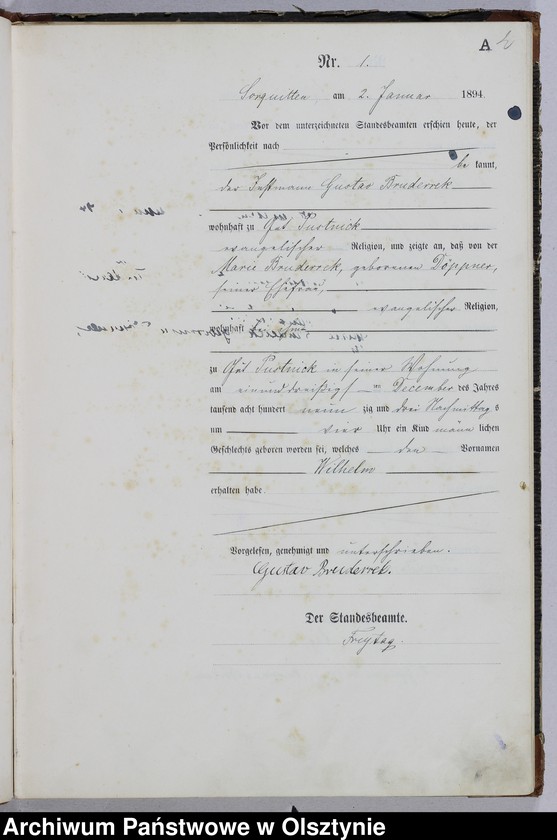 A 2
Nr. 1.
Sorquitten am 2. Januar 1894
Vor dem unterzeichneten Standesbeamten erschien heute, der
Persönlichkeit nach
be kannt,
der Instmann Gustav Bruderrek
wohnhaft zu Gut Pustnick
evangelischer Religion, und zeigte an, daß von der
Marie Bruderrek, geborenen Döppner,
seiner Ehefrau,
evangelischer Religion,
wohnhaft
zu Gut Pustnick in seiner Wohnung
am einunddreißigsten December des Jahres
tausend acht hundert neun zig und drei Nachmittag s
um vier Uhr ein Kind männ lichen
Geschlechts geboren worden sei, welches den Vornamen
Wilhelm
erhalten habe.
Vorgelesen, genehmigt und unterschrieben.
Gustav Bruderrek.
Der Standesbeamte.
Freytag.
Archiwum Państwowe w Olsztynie